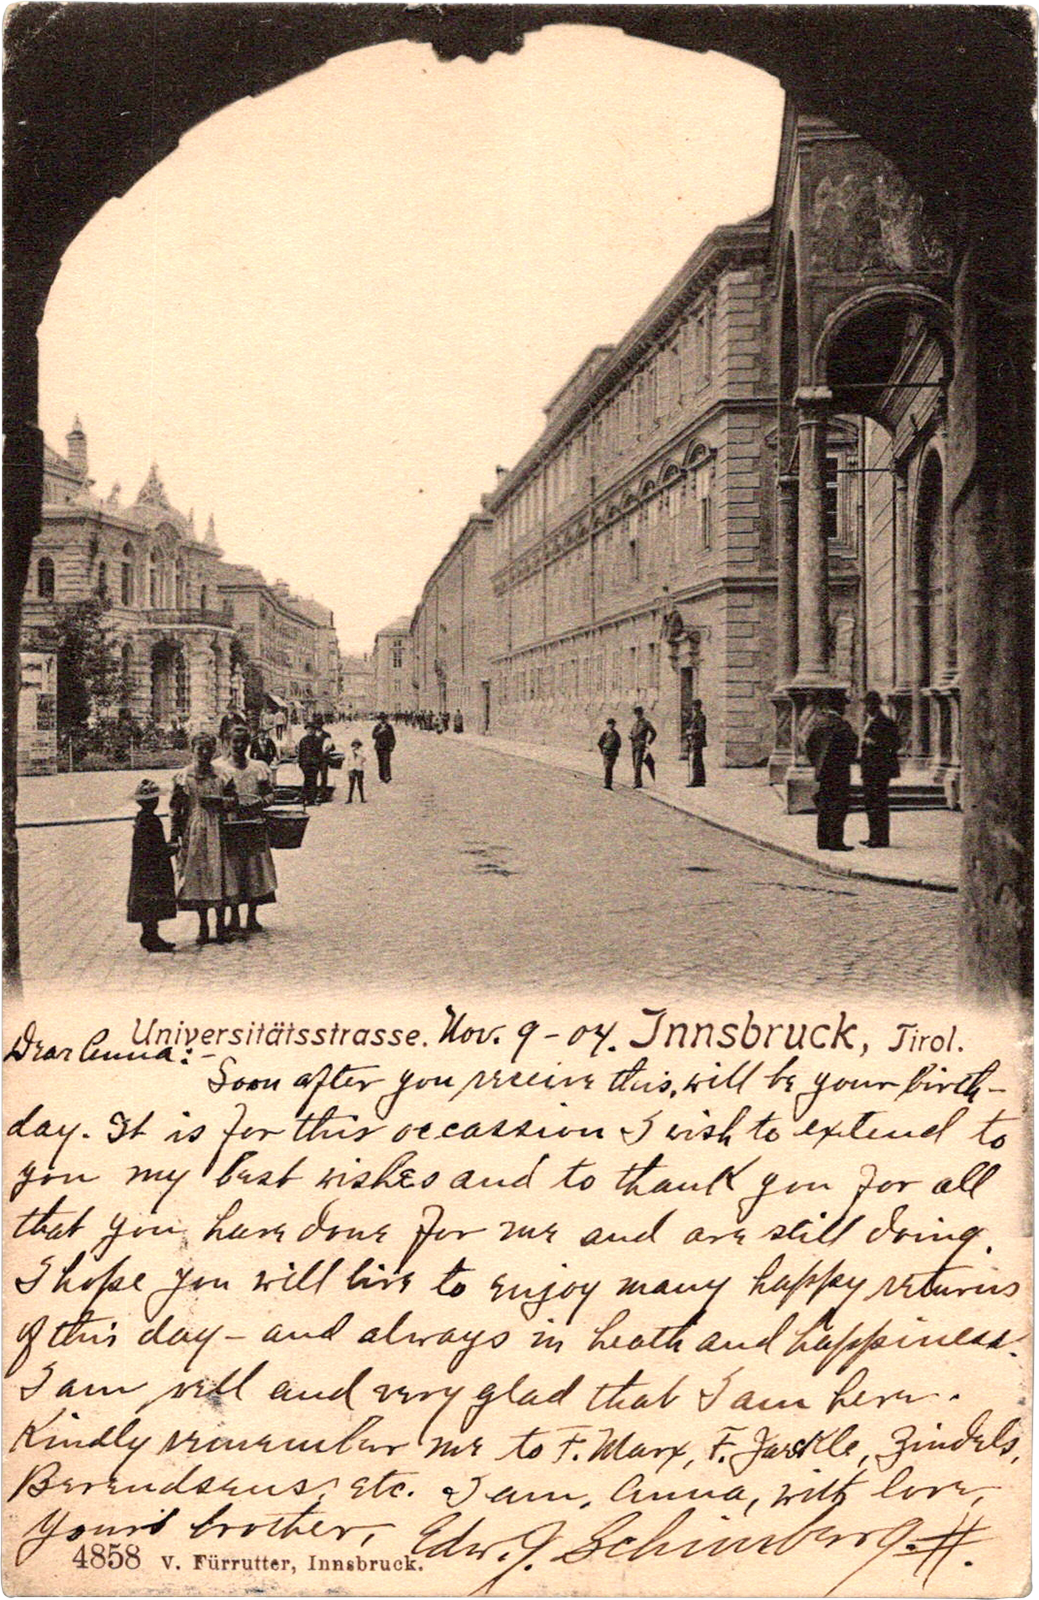 Universitätsstrasse. Nov. 9 - 04. Innsbruck, Tirol.
Dear Anna:-
Soon after you receive this, will be your birth-
day. It is for this occassion I wish to extend to
you my best wishes and to thank you for all
that you have done for me and are still doing.
I hope you will live to enjoy many happy returns
of this day - and always in heath and happiness.
I am well and very glad that I am here.
Kindly remember me to F. Marx, F. Jaekle, Zindels,
Berendsens, etc. I am, Anna, with love,
Yours brother, Edw. J. Schimberg.
4858 V. Fürrutter, Innsbruck.